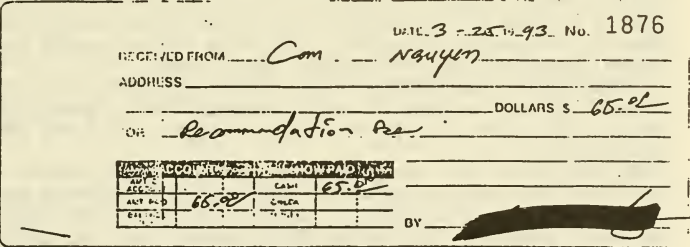 DATE 3 - 25 19 93 No. 1876
RECEIVED FROM Com Nguyen
ADDRESS
DOLLARS $ 65.00
FOR Recommendation Fee
ACCOUNT HOW PAID
AMT. OF ACCOUNT CASH 65.00
AMT. PAID 65.00 CHECK
BALANCE
BY